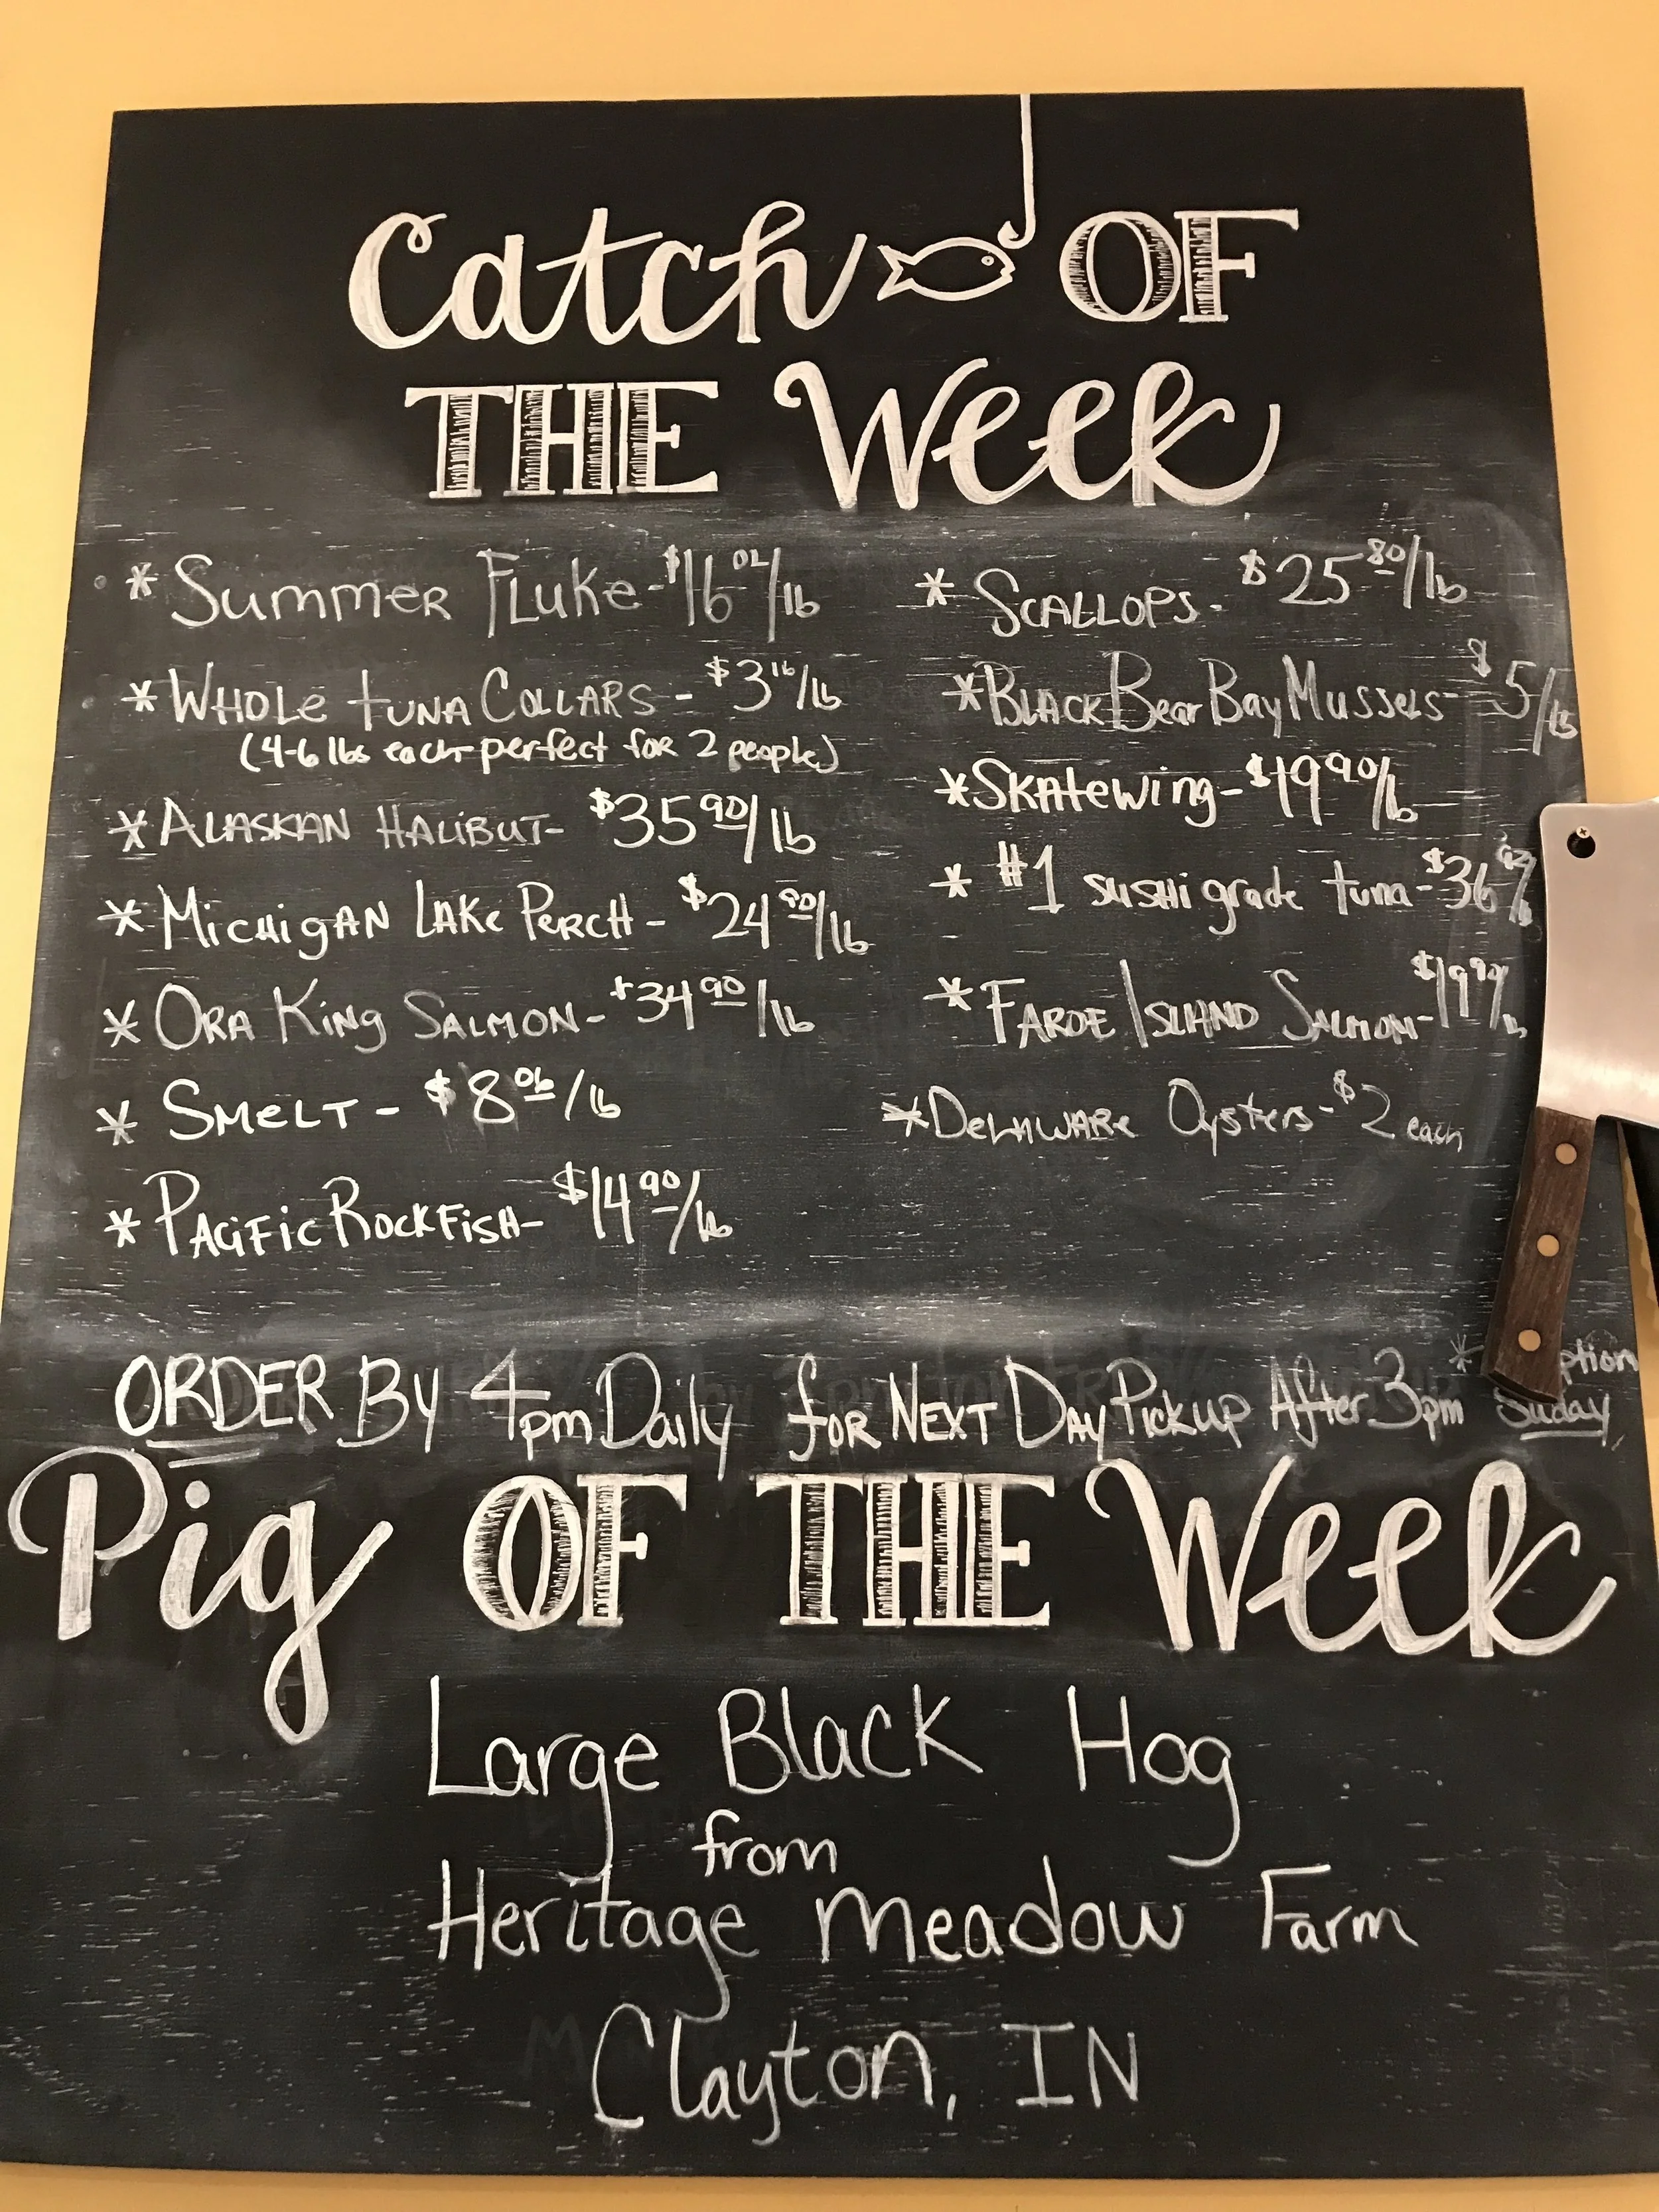 Catch OF
THE Week
* Summer Fluke - $16.02/lb
* Whole tuna Collars - $3.16/lb
(4-6 lbs each - perfect for 2 people)
* Alaskan Halibut - $35.90/lb
* Michigan Lake Perch - $24.90/lb
* Ora King Salmon - $34.90/lb
* Smelt - $8.06/lb
* Pacific Rockfish - $14.90/lb
* Scallops - $25.80/lb
* Black Bear Bay Mussels - $5/lb
* Skatewing - $19.90/lb
* #1 sushi grade tuna - $36
* Faroe Island Salmon - $19.90/lb
* Delaware Oysters - $2 each
ORDER By 4pm Daily for Next Day Pickup After 3pm
Suday
Pig OF THE Week
Large Black Hog
from
Heritage Meadow Farm
Clayton, IN